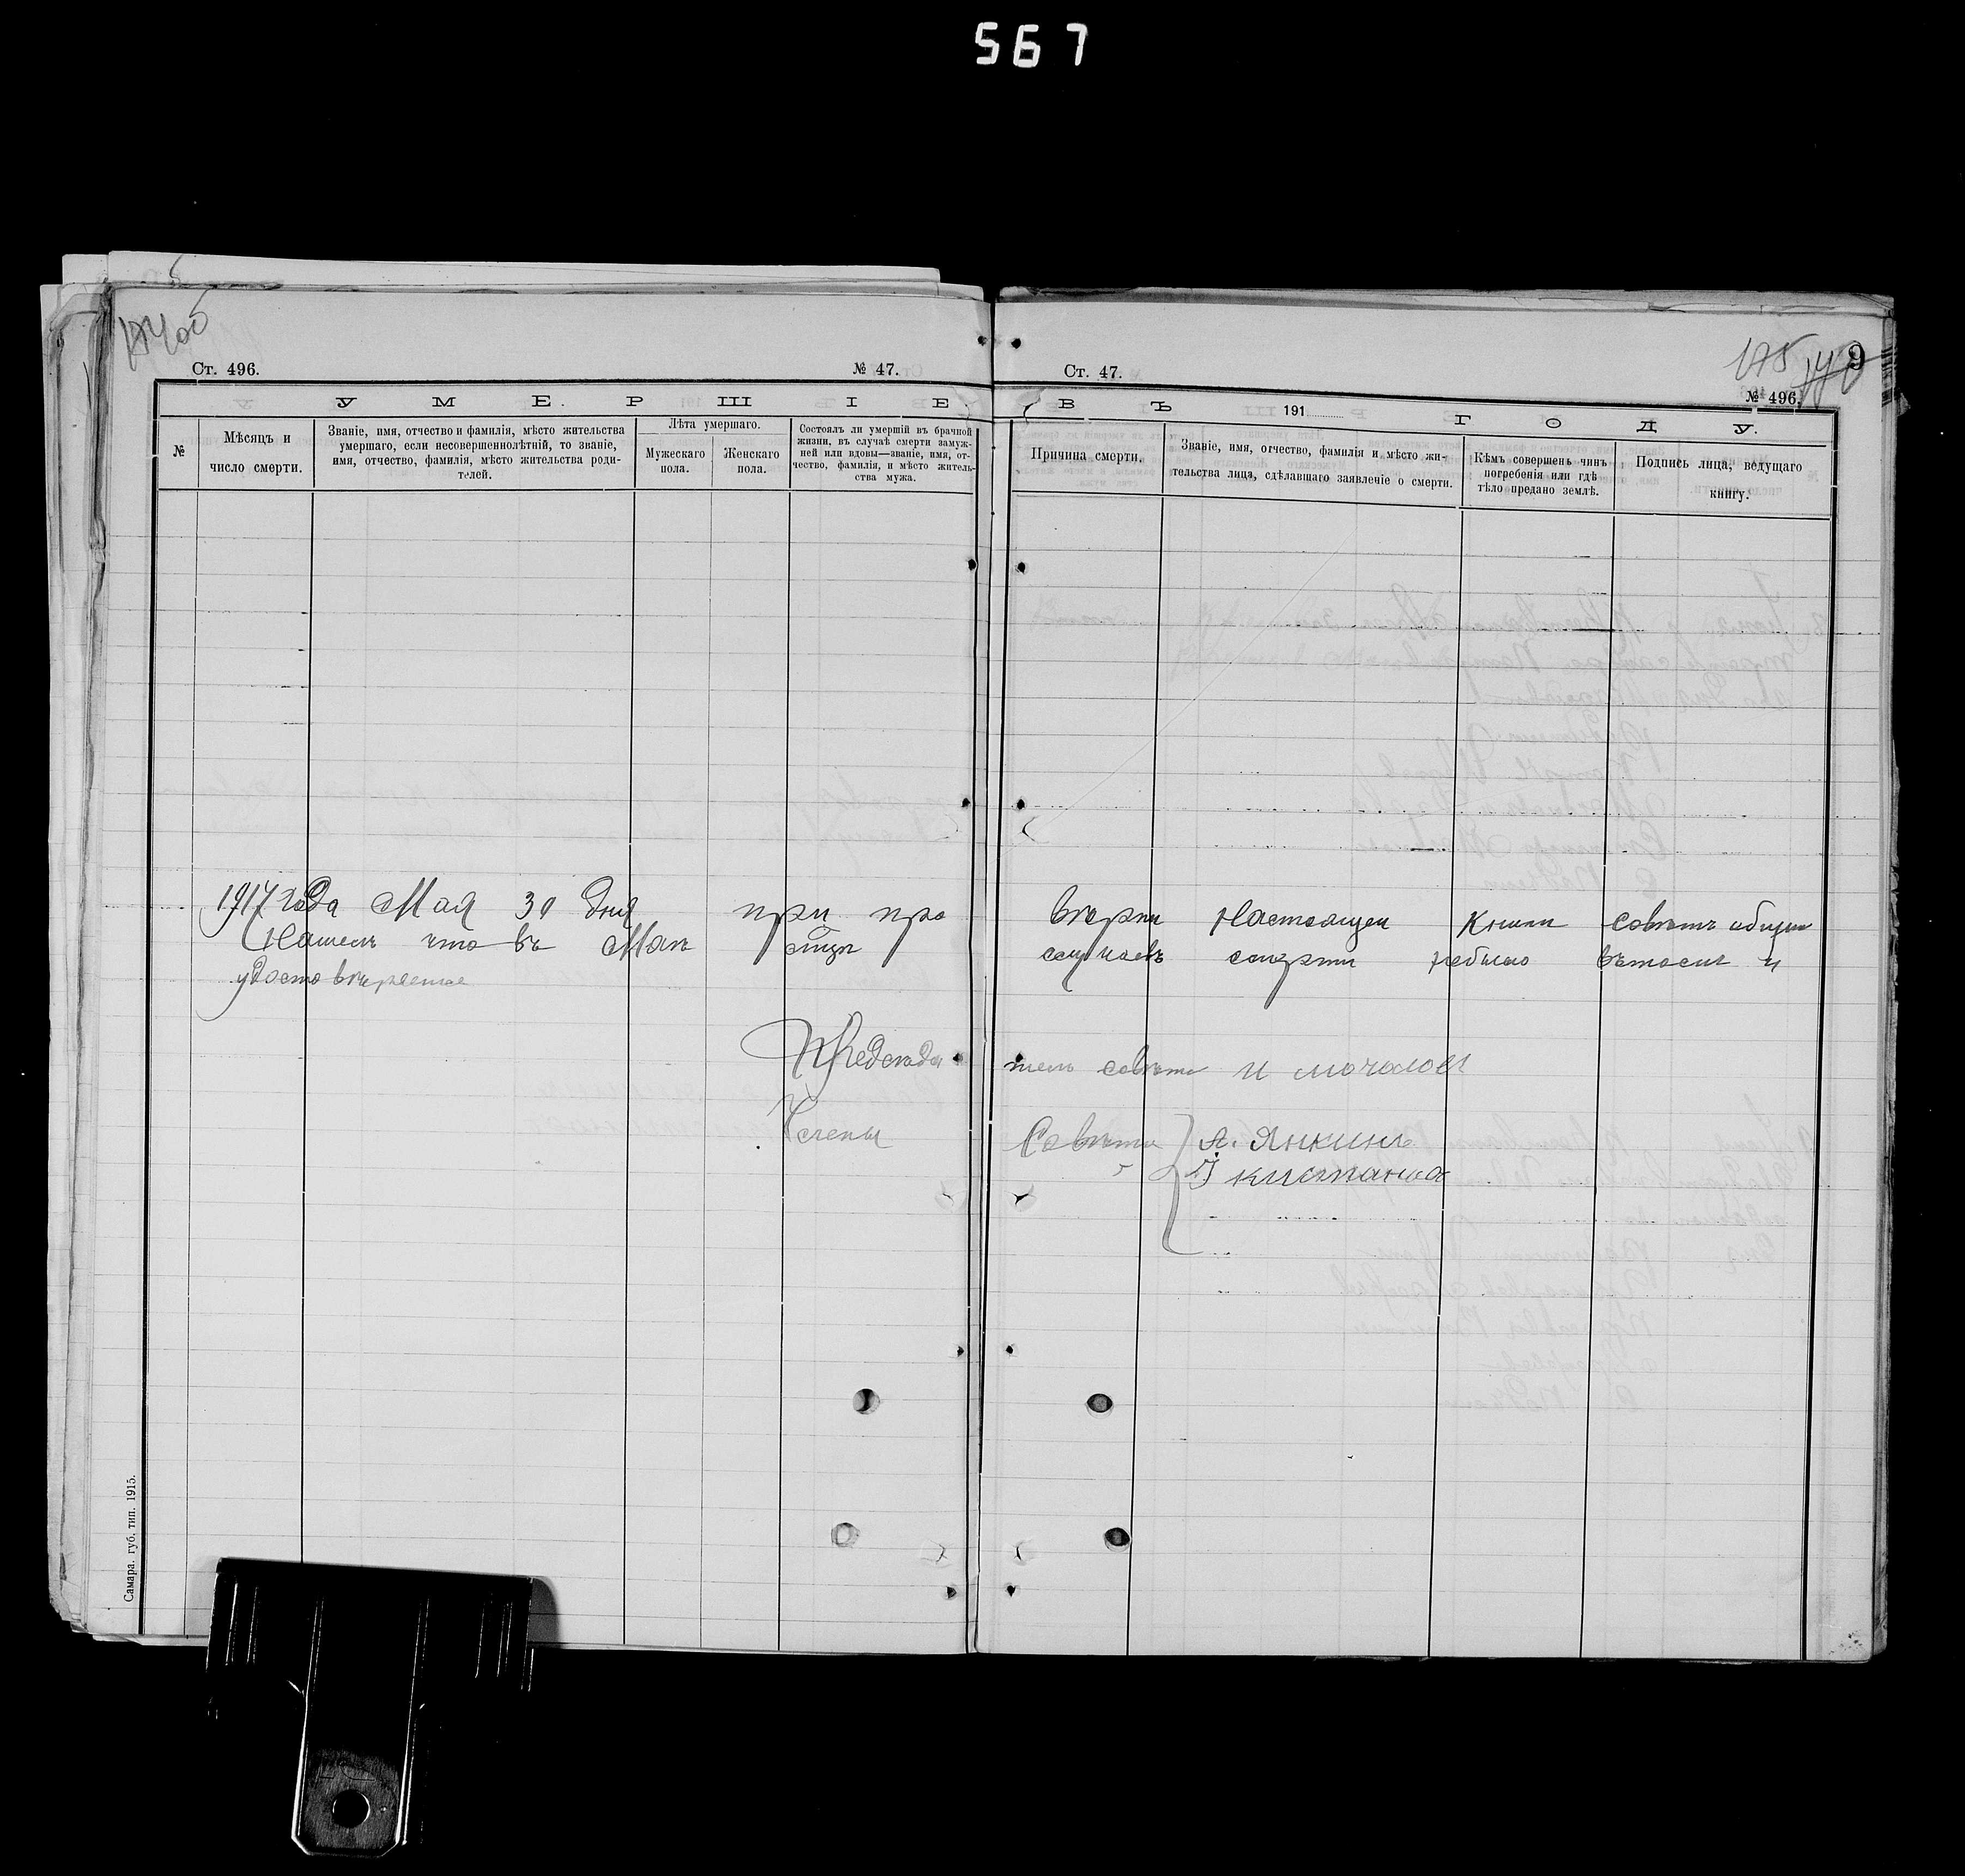 567
175
9
Ст. 496.
№ 47.
Ст. 47.
№ 496.
У М Е Р Ш І Е
В Ъ 191 Г О Д У.
№
Мѣсяцъ и
число смерти.
Званіе, имя, отчество и фамилія, мѣсто жительства
умершаго, если несовершеннолѣтній, то званіе,
имя, отчество, фамилія, мѣсто жительства роди-
телей.
Лѣта умершаго.
Мужескаго
пола.
Женскаго
пола.
Состоялъ ли умершій въ брачной
жизни, въ случаѣ смерти замуж-
ней или вдовы—званіе, имя, от-
чество, фамилія, и мѣсто житель-
ства мужа.
Причина смерти.
Званіе, имя, отчество, фамилія и мѣсто жи-
тельства лица, сдѣлавшаго заявленіе о смерти.
Кѣмъ совершенъ чинъ
погребенія или гдѣ
тѣло предано землѣ.
Подпись лица, ведущаго
книгу.
1917 года Мая 30 дня при про вѣрки Настоящеи Книги совѣтъ общин
Нашелъ что въ Маѣ случаевъ смерти небыло вътомъ и
удостовѣряетъ
Председа тель совѣта И мочалов
Члены Совѣта А. Янкинъ
Самара. губ. тип. 1915.